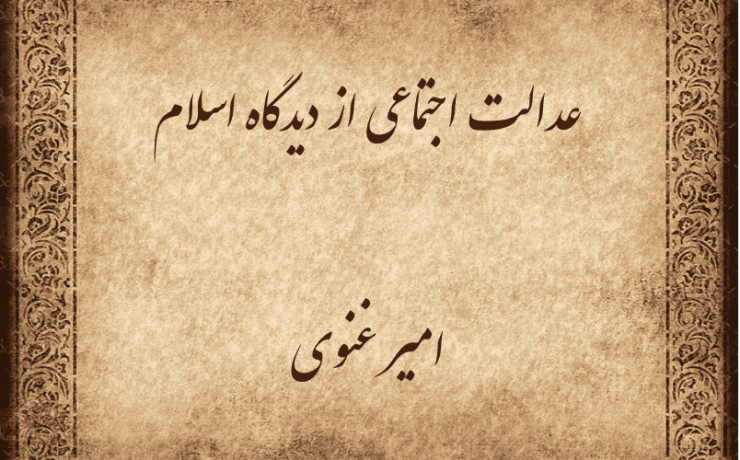 عدالت اجتماعی از دیدگاه اسلام
امیر غنوی